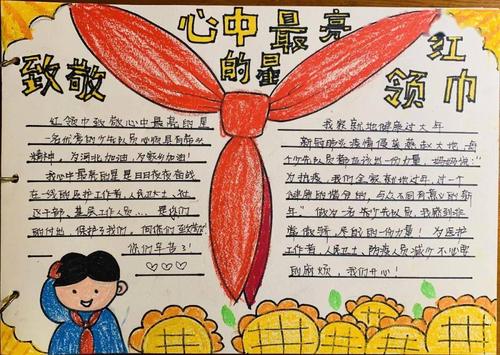 心中最亮
的星
致敬
红
领巾
红领巾致敬心中最亮的星
一名优秀的少先队员心向具有
精神，为河北加油，为家乡加油！
我心中最亮的星是日日夜夜奋战
在一线的医护工作者、人民卫士、社
区干部、基层工作人员……是你们
的付出，保护了我们，向你们致敬！
你们辛苦了！
我家就地健康过大年
新冠肺炎疫情侵袭燕赵大地，每
个少先队员都应该出一份力量，妈妈说：“
为抗疫，我们全家就地过年，过一个
健康的有分的，与众不同有意义的新
年”做为一名少先队员，我感到非
常骄傲，尽自己的一份力量！为医护
工作者、人民卫士、防疫人员减少不必要
的麻烦，我们开心！